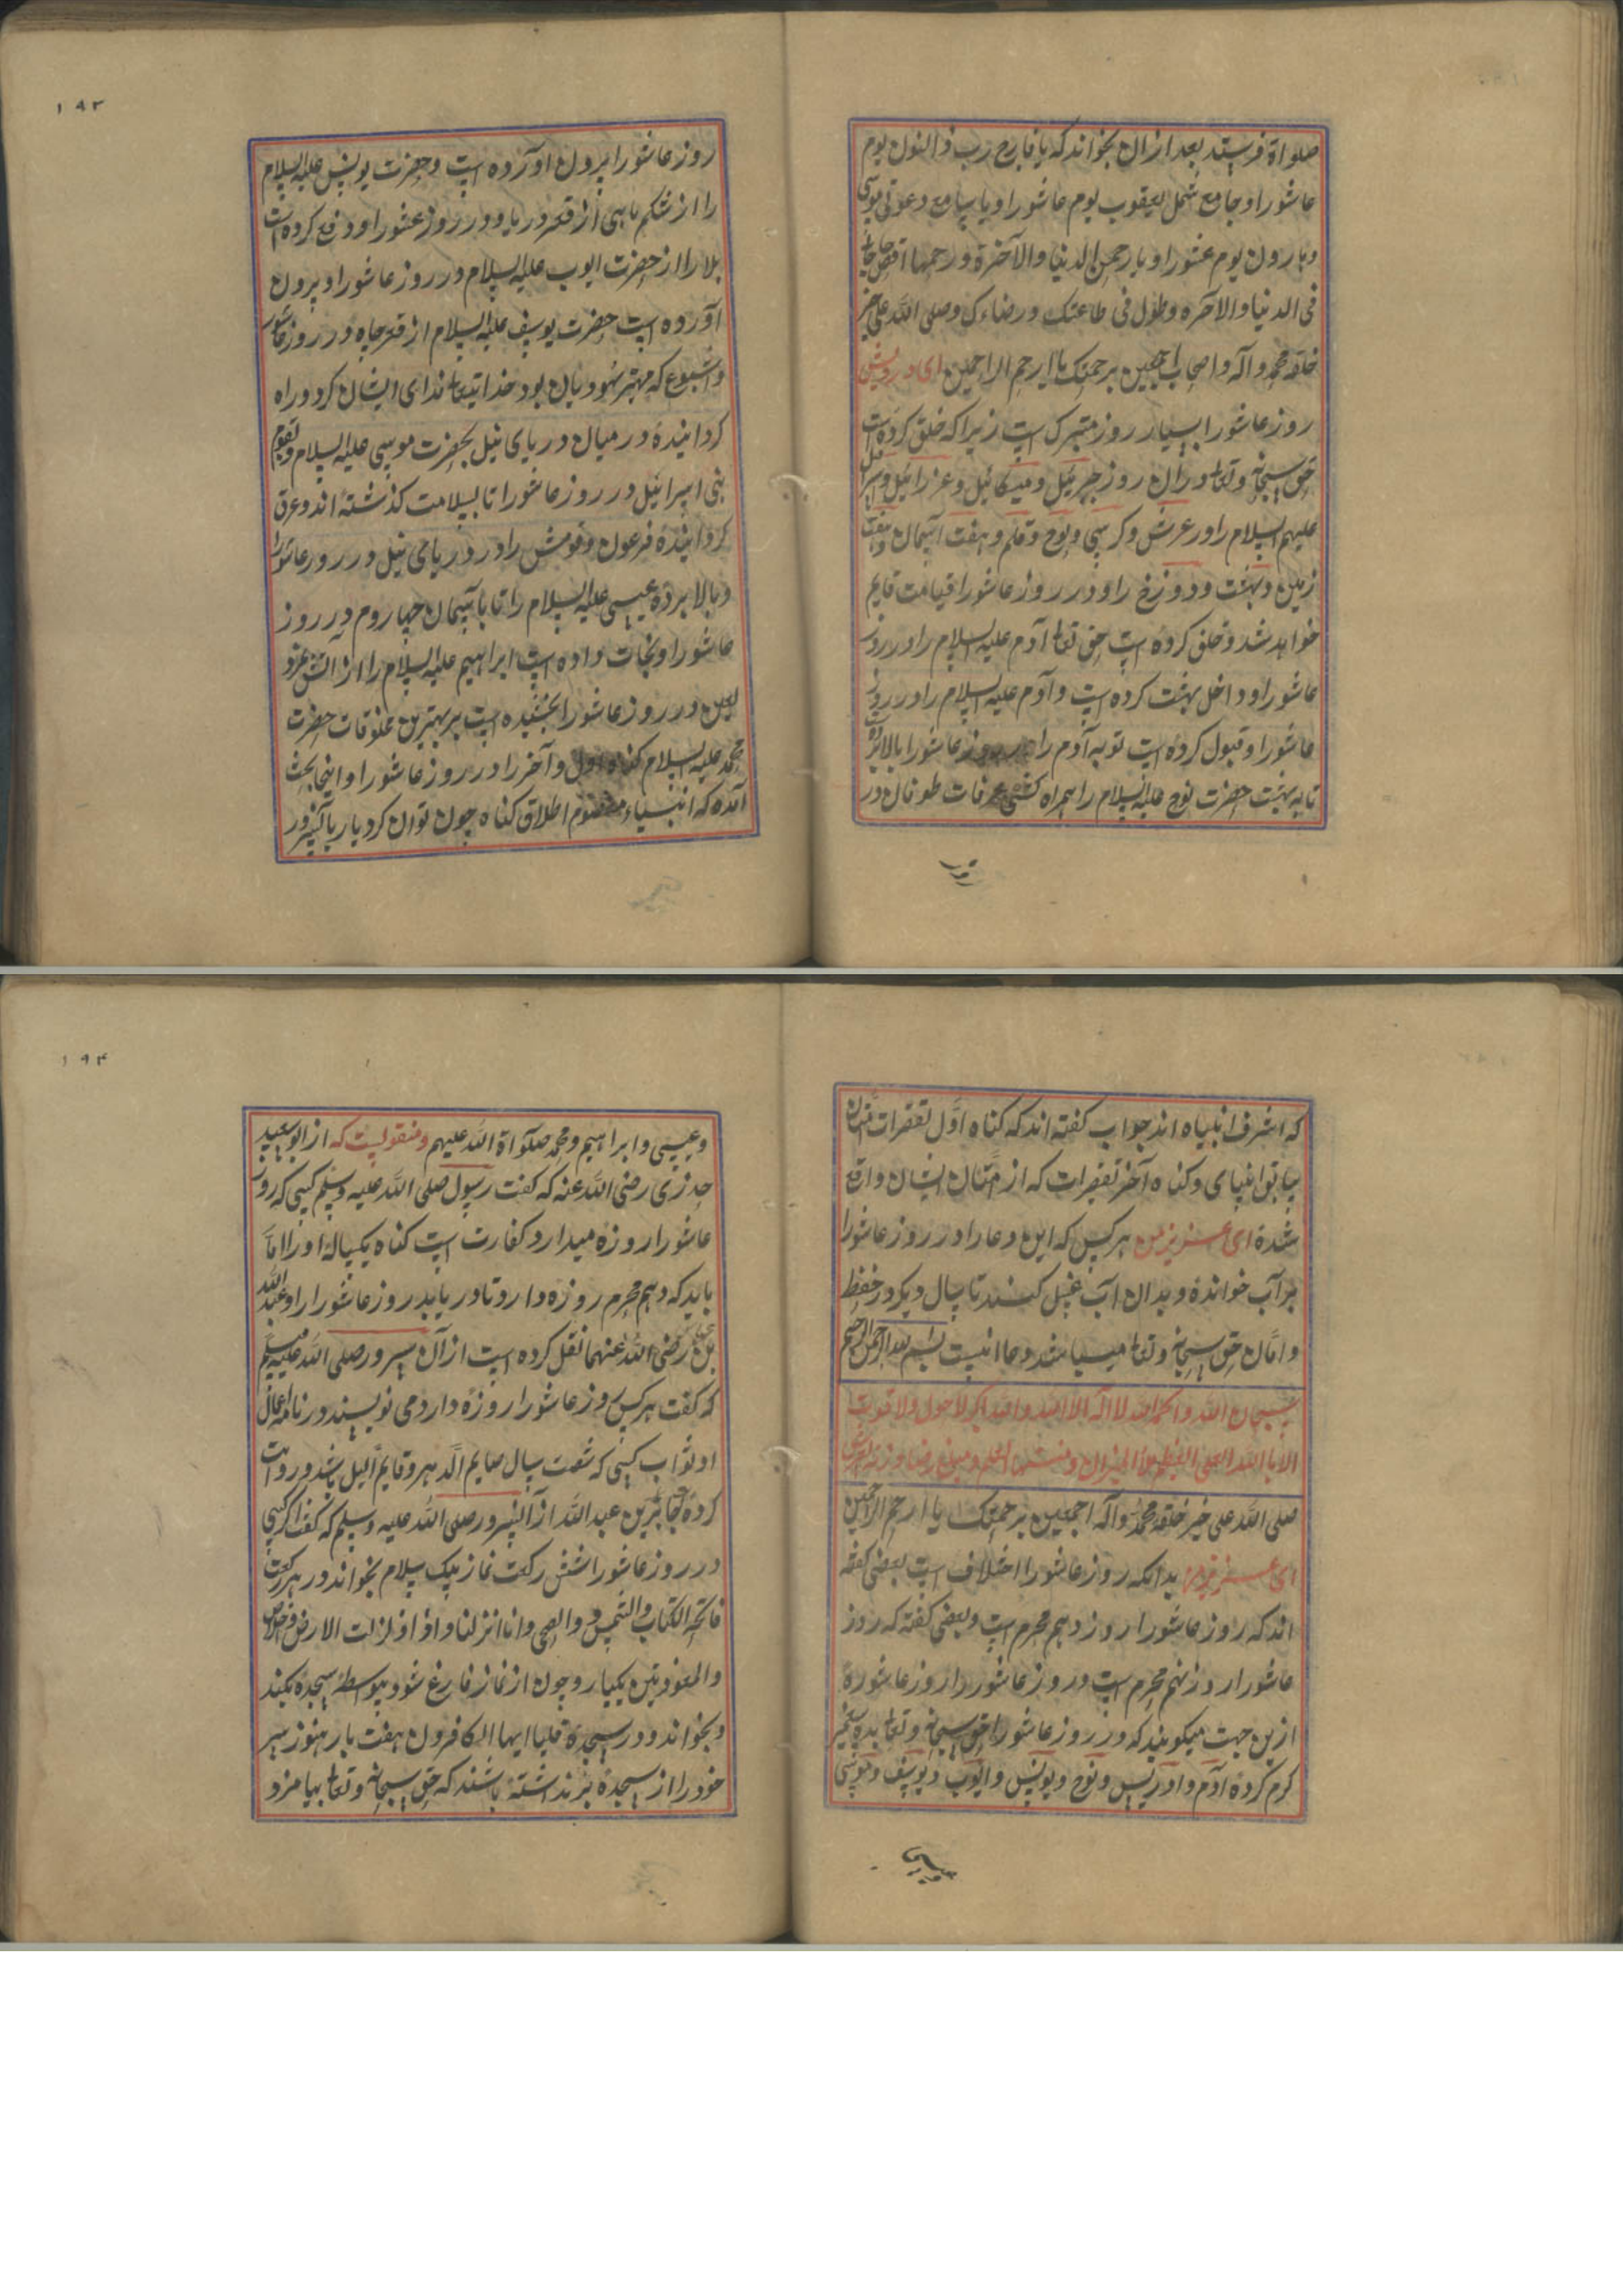 صلواة فرستد بعد ازان بخواند که یا فارج رب ذوالنون یوم
عاشورا و جامع شمل یعقوب یوم عاشورا و یا سامع دعوتی موسی
و هارون یوم عشورا و یا رحمن الدنیا والآخرة و رحمها اقض حاجاتی
فی الدنیا والاخره وطول فی طاعتک و رضاءک وصلی الله علی خیر
خلقه محمد وآله واصحابه اجمعین برحمتک یا ارحم الراحمین ای درویش
روز عاشورا بسیار روز متبرک است زیرا که خلق کرده است
حق سبحانه وتعالی دران روز جبرئیل ومیکائیل وعزرائیل واسرافیل
علیهم السلام را و عرش وکرسی ولوح وقلم وهفت آسمان وهفت
زمین وبهشت ودوزخ را و در روز عاشورا قیامت قایم
خواهد شد وخلق کرده است حق تعالی آدم علیه السلام را در روز
عاشورا و داخل بهشت کرده است وآدم علیه السلام را در روز
عاشورا و قبول کرده است توبه آدم را در روز عاشورا بالا برده
تا به بهشت حضرت نوح علیه السلام را همراه کشتی عرفات طوفان در
روز
١٩٣
روز عاشورا برون آورده است وحضرت یونس علیه السلام
را از شکم ماهی از قعر دریا و در روز عشورا و دفع کرده است
بلا را از حضرت ایوب علیه السلام در روز عاشورا و برون
آورده است حضرت یوسف علیه السلام از قعر چاه در روز عاشور
که مهتر بود خدایتعالی ندای ایشان کرد و راه
کردانیده در میان دریای نیل بحضرت موسی علیه السلام وبقوم
بنی اسرائیل در روز عاشورا تا بسلامت کذشته اند وغرق
کردانیده فرعون وقومش را در دریای نیل در روز عاشورا
وبالا برده عیسی علیه السلام را تا باسمان چهاروم در روز
عاشورا ونجات داده است ابراهیم علیه السلام را از آتش نمرود
لعین در روز عاشورا بخشیده است بر بهترین مخلوقات حضرت
محمد علیه السلام کناه اول وآخر را در روز عاشورا و اینجا بحث
آمده که انبیاء معصوم اطلاق کناه چون توان کرد یا ربا کنیز ور
که اشرف انبیاه اند جواب کفته اند که کناه اول تقصرات شده
سابق انبیای وکناه آخر تقصیرات که از امتان ایشان واقع
شده ای عزیز من هر کس که این دعا را در روز عاشورا
بر آب خوانده وبدان آب غسل کنند تا سال دیکر در حفظ
وامان حق سبحانه وتعالی میباشد ودعا اینست بسم الله الرحمن الرحیم
سبحان الله والحمدلله لا اله الا الله والله اکبر لا حول ولا قوت
الا بالله العلی العظیم ملأ المیزان ومنتها العلم ومبلغ رضا وزنة العرش
صلی الله علی خیر خلقه محمد وآله اجمعین برحمتک یا ارحم الراحمین
ای عزیز من بدانکه روز عاشورا اختلاف است بعضی کفته
اند که روز عاشورا روز دهم محرم است وبعضی کفته که روز
عاشورا روز نهم محرم است و روز عاشورا را روز عاشوره
ازین جهت میکویند که در روز عاشورا حق سبحانه وتعالی بده پیغمبر
کرم کرده آدم وادریس ونوح ویونس وایوب ویوسف وموسی
وعیسی
١٩۴
وعیسی وابراهیم ومحمد صلوآة الله علیهم ومنقولست که از ابو سعید
حذری رضی الله عنه که کفت رسول صلی الله علیه وسلم کسی که روز
عاشورا روزه میدارد کفارت است کناه یکساله او را اما
باید که دهم محرم روزه دارد تا دریابد روز عاشورا را وعبدالله
بن عباس رضی الله عنهما نقل کرده است از آن سرور صلی الله علیه وسلم
که کفت هر کس روز عاشورا روزه دارد می نویسند در نامه اعمال
او ثواب کسی که شصت سال صایم الدهر وقایم اللیل باشد و روایت
کرده جابر بن عبدالله از آنسرور صلی الله علیه وسلم که کفت اکر کسی
در روز عاشورا شش رکعت نماز بیک سلام بخواند در هر رکعت
فاتحه الکتاب والشمس و والضحی وانا انزلنا واذا زلزلت الارض واخلاص
والمعوذتین یکبار وچون از نماز فارغ شود بیواسطه سجده بکند
وبخواند ودر سجده قل یا ایها الکافرون هفت بار هنوز سر
خود را از سجده بر نداشته باشند که حق سبحانه وتعالی بیامرزد